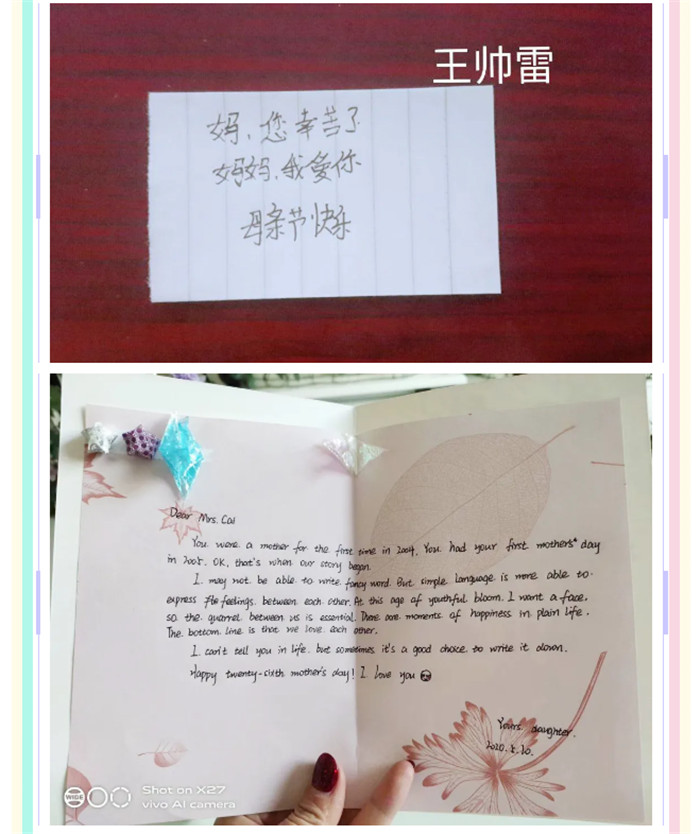 王帅雷
妈,您幸苦了
妈妈,我爱你
母亲节快乐
Dear Mrs. Cai
You were a mother for the first time in 2004. You had your first mothers' day
in 2005. OK, that's when our story began.
I may not be able to write fancy word. But simple language is more able to
express the feelings between each other. At this age of youthful bloom. I want a face.
so the quarrel between us is essential. There are moments of happiness in plain life.
The bottom line is that we love each other.
I can't tell you in life. but sometimes it's a good choice to write it down.
Happy twenty-sixth mother's day! I love you
Yours daughter.
2020.5.10.
WIDE
Shot on X27
vivo AI camera